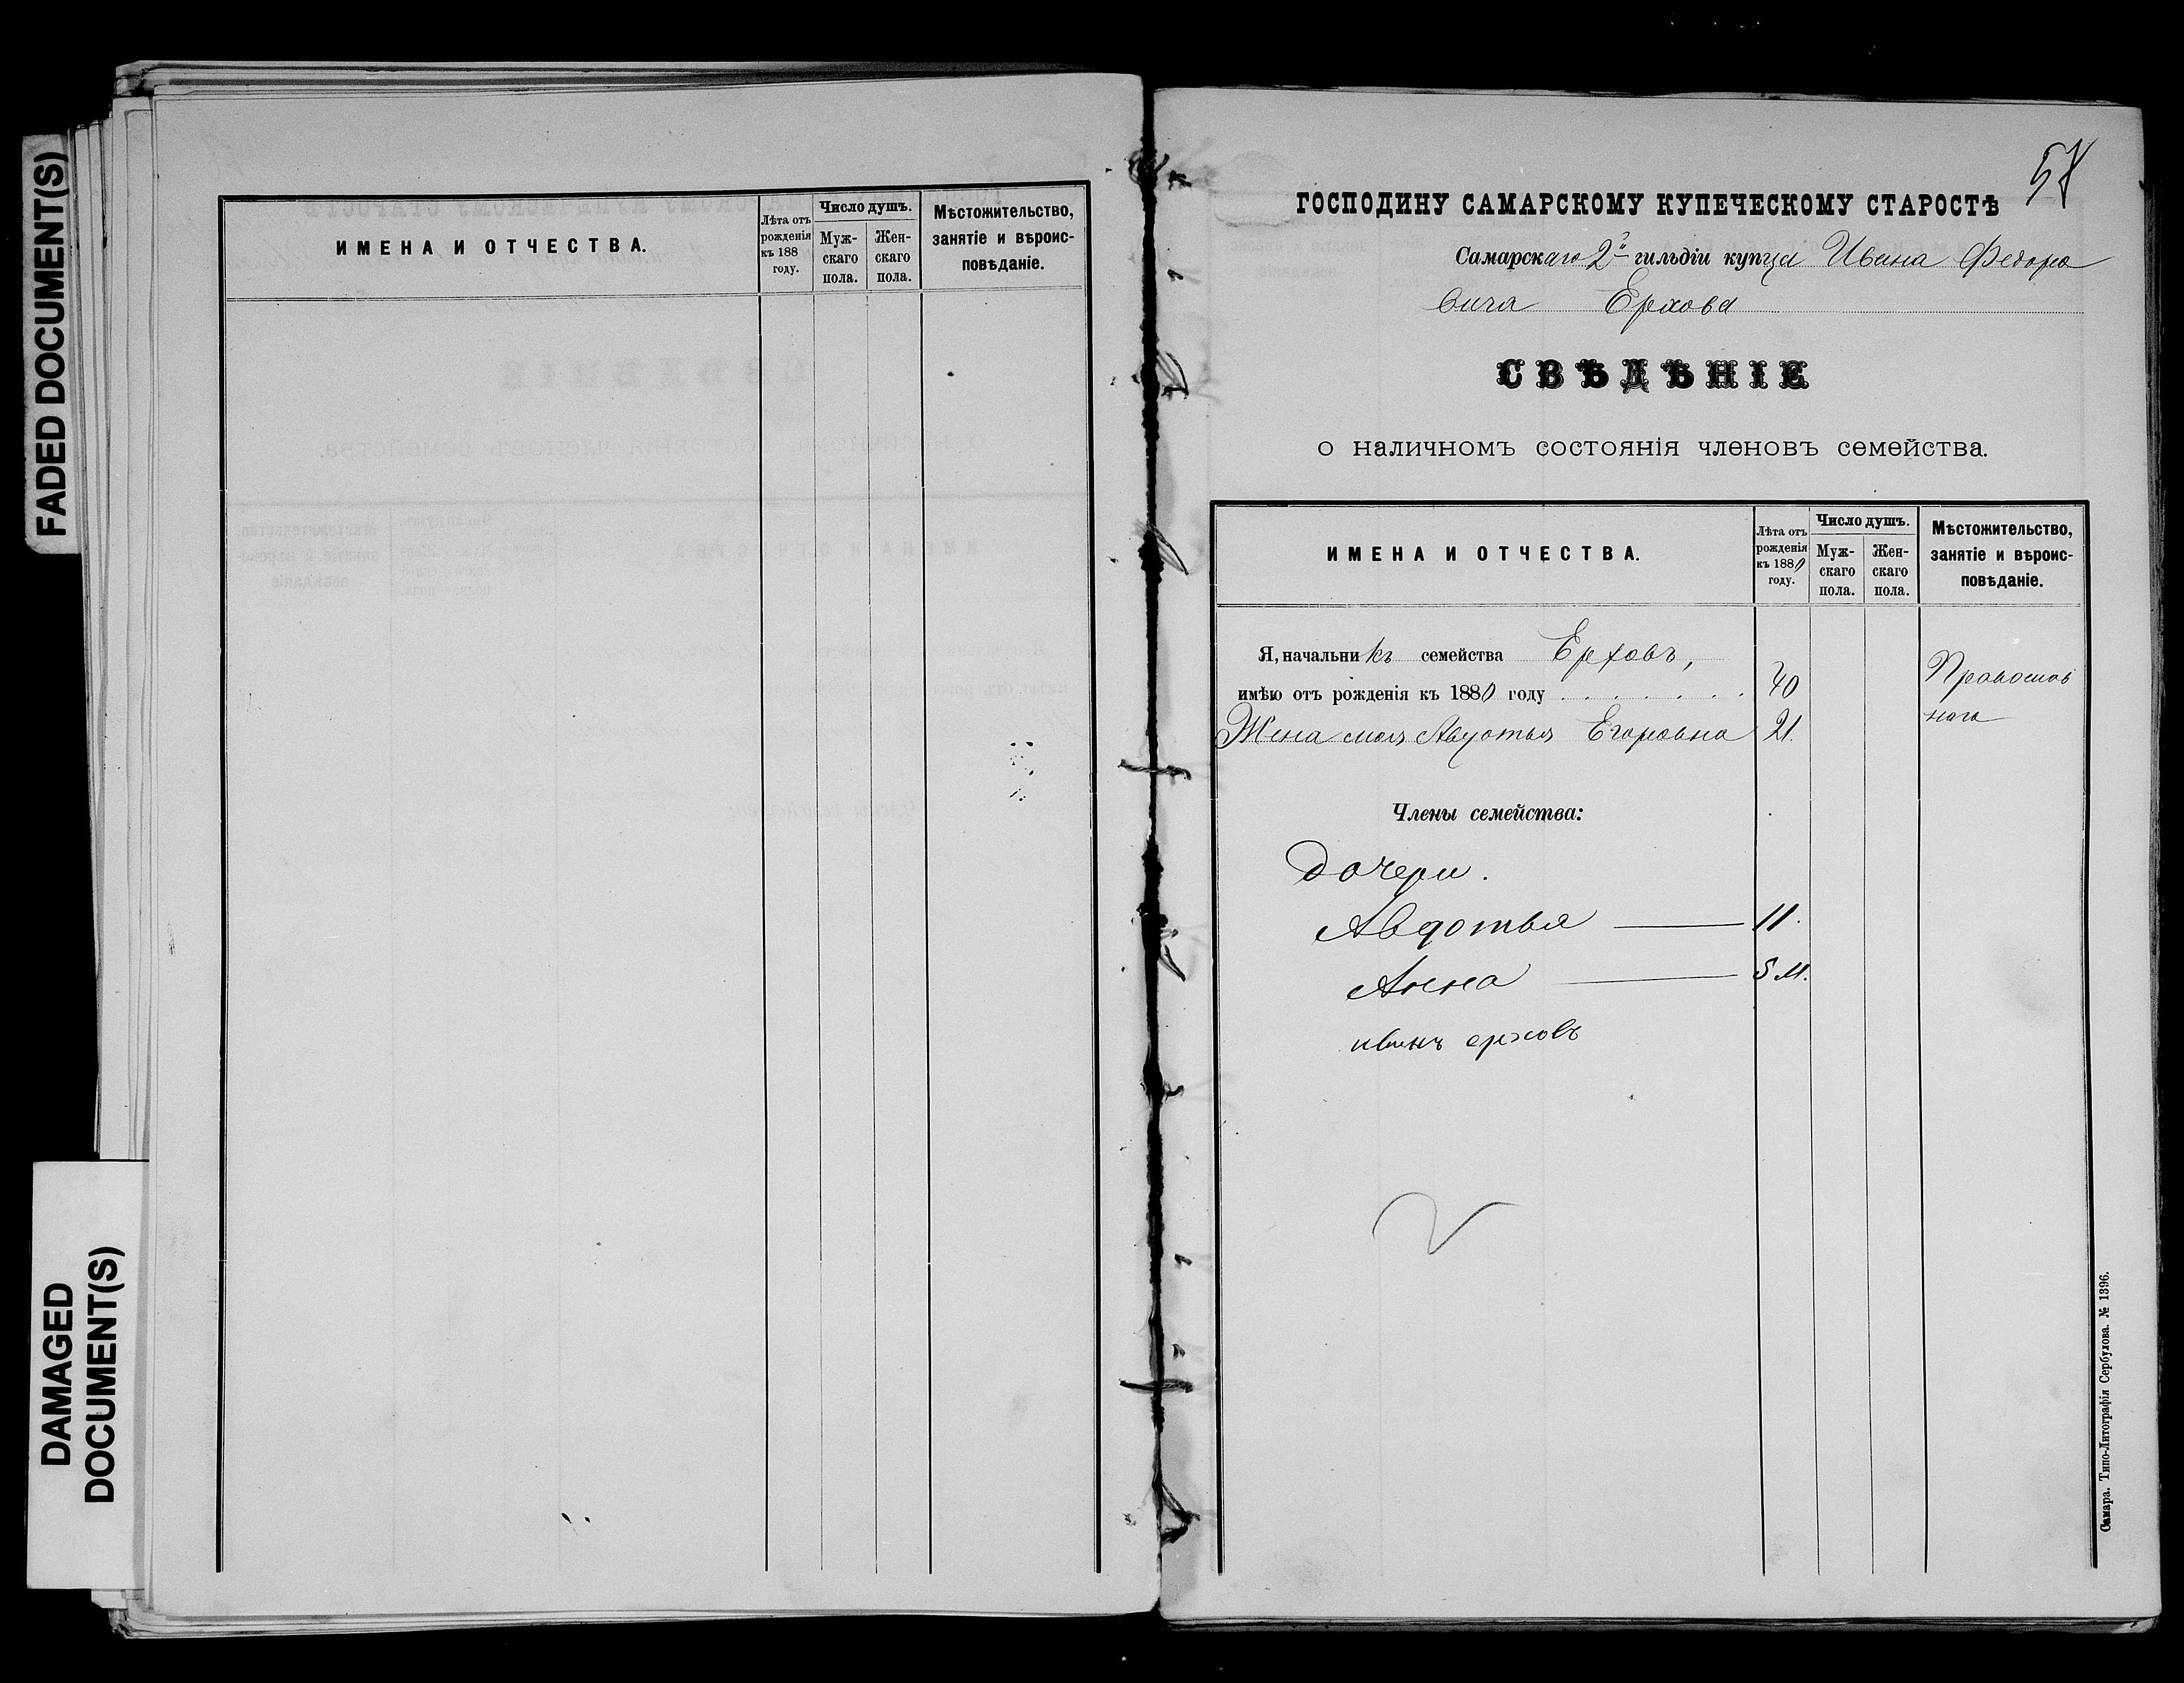 FADED DOCUMENT(S)
DAMAGED
DOCUMENT(S)
ИМЕНА И ОТЧЕСТВА.
Лѣта отъ
рожденія
къ 188
году.
Число душъ.
Муж-
скаго
пола.
Жен-
скаго
пола.
Мѣстожительство,
занятіе и вѣроис-
повѣданіе.
ГОСПОДИНУ САМАРСКОМУ КУПЕЧЕСКОМУ СТАРОСТѢ
Самарскаго 2й гильдіи купца Ивана Федоро
вича Ерхова
СВѢДѢНІЕ
о наличномъ состоянія членовъ семейства.
ИМЕНА И ОТЧЕСТВА.
Лѣта отъ
рожденія
къ 1880
году.
Число душъ.
Муж-
скаго
пола.
Жен-
скаго
пола.
Мѣстожительство,
занятіе и вѣроис-
повѣданіе.
Я, начальникъ семейства Ерховъ,
имѣю отъ рожденія къ 1880 году . . . . . . . 40
Православ
наго
Жена моя Авдотья Егоровна 21.
Члены семейства:
Дочери.
Авдотья — 11.
Анна — 5 м.
иванъ ерховъ
Самара. Типо-Литографія Сербулова. № 1396.